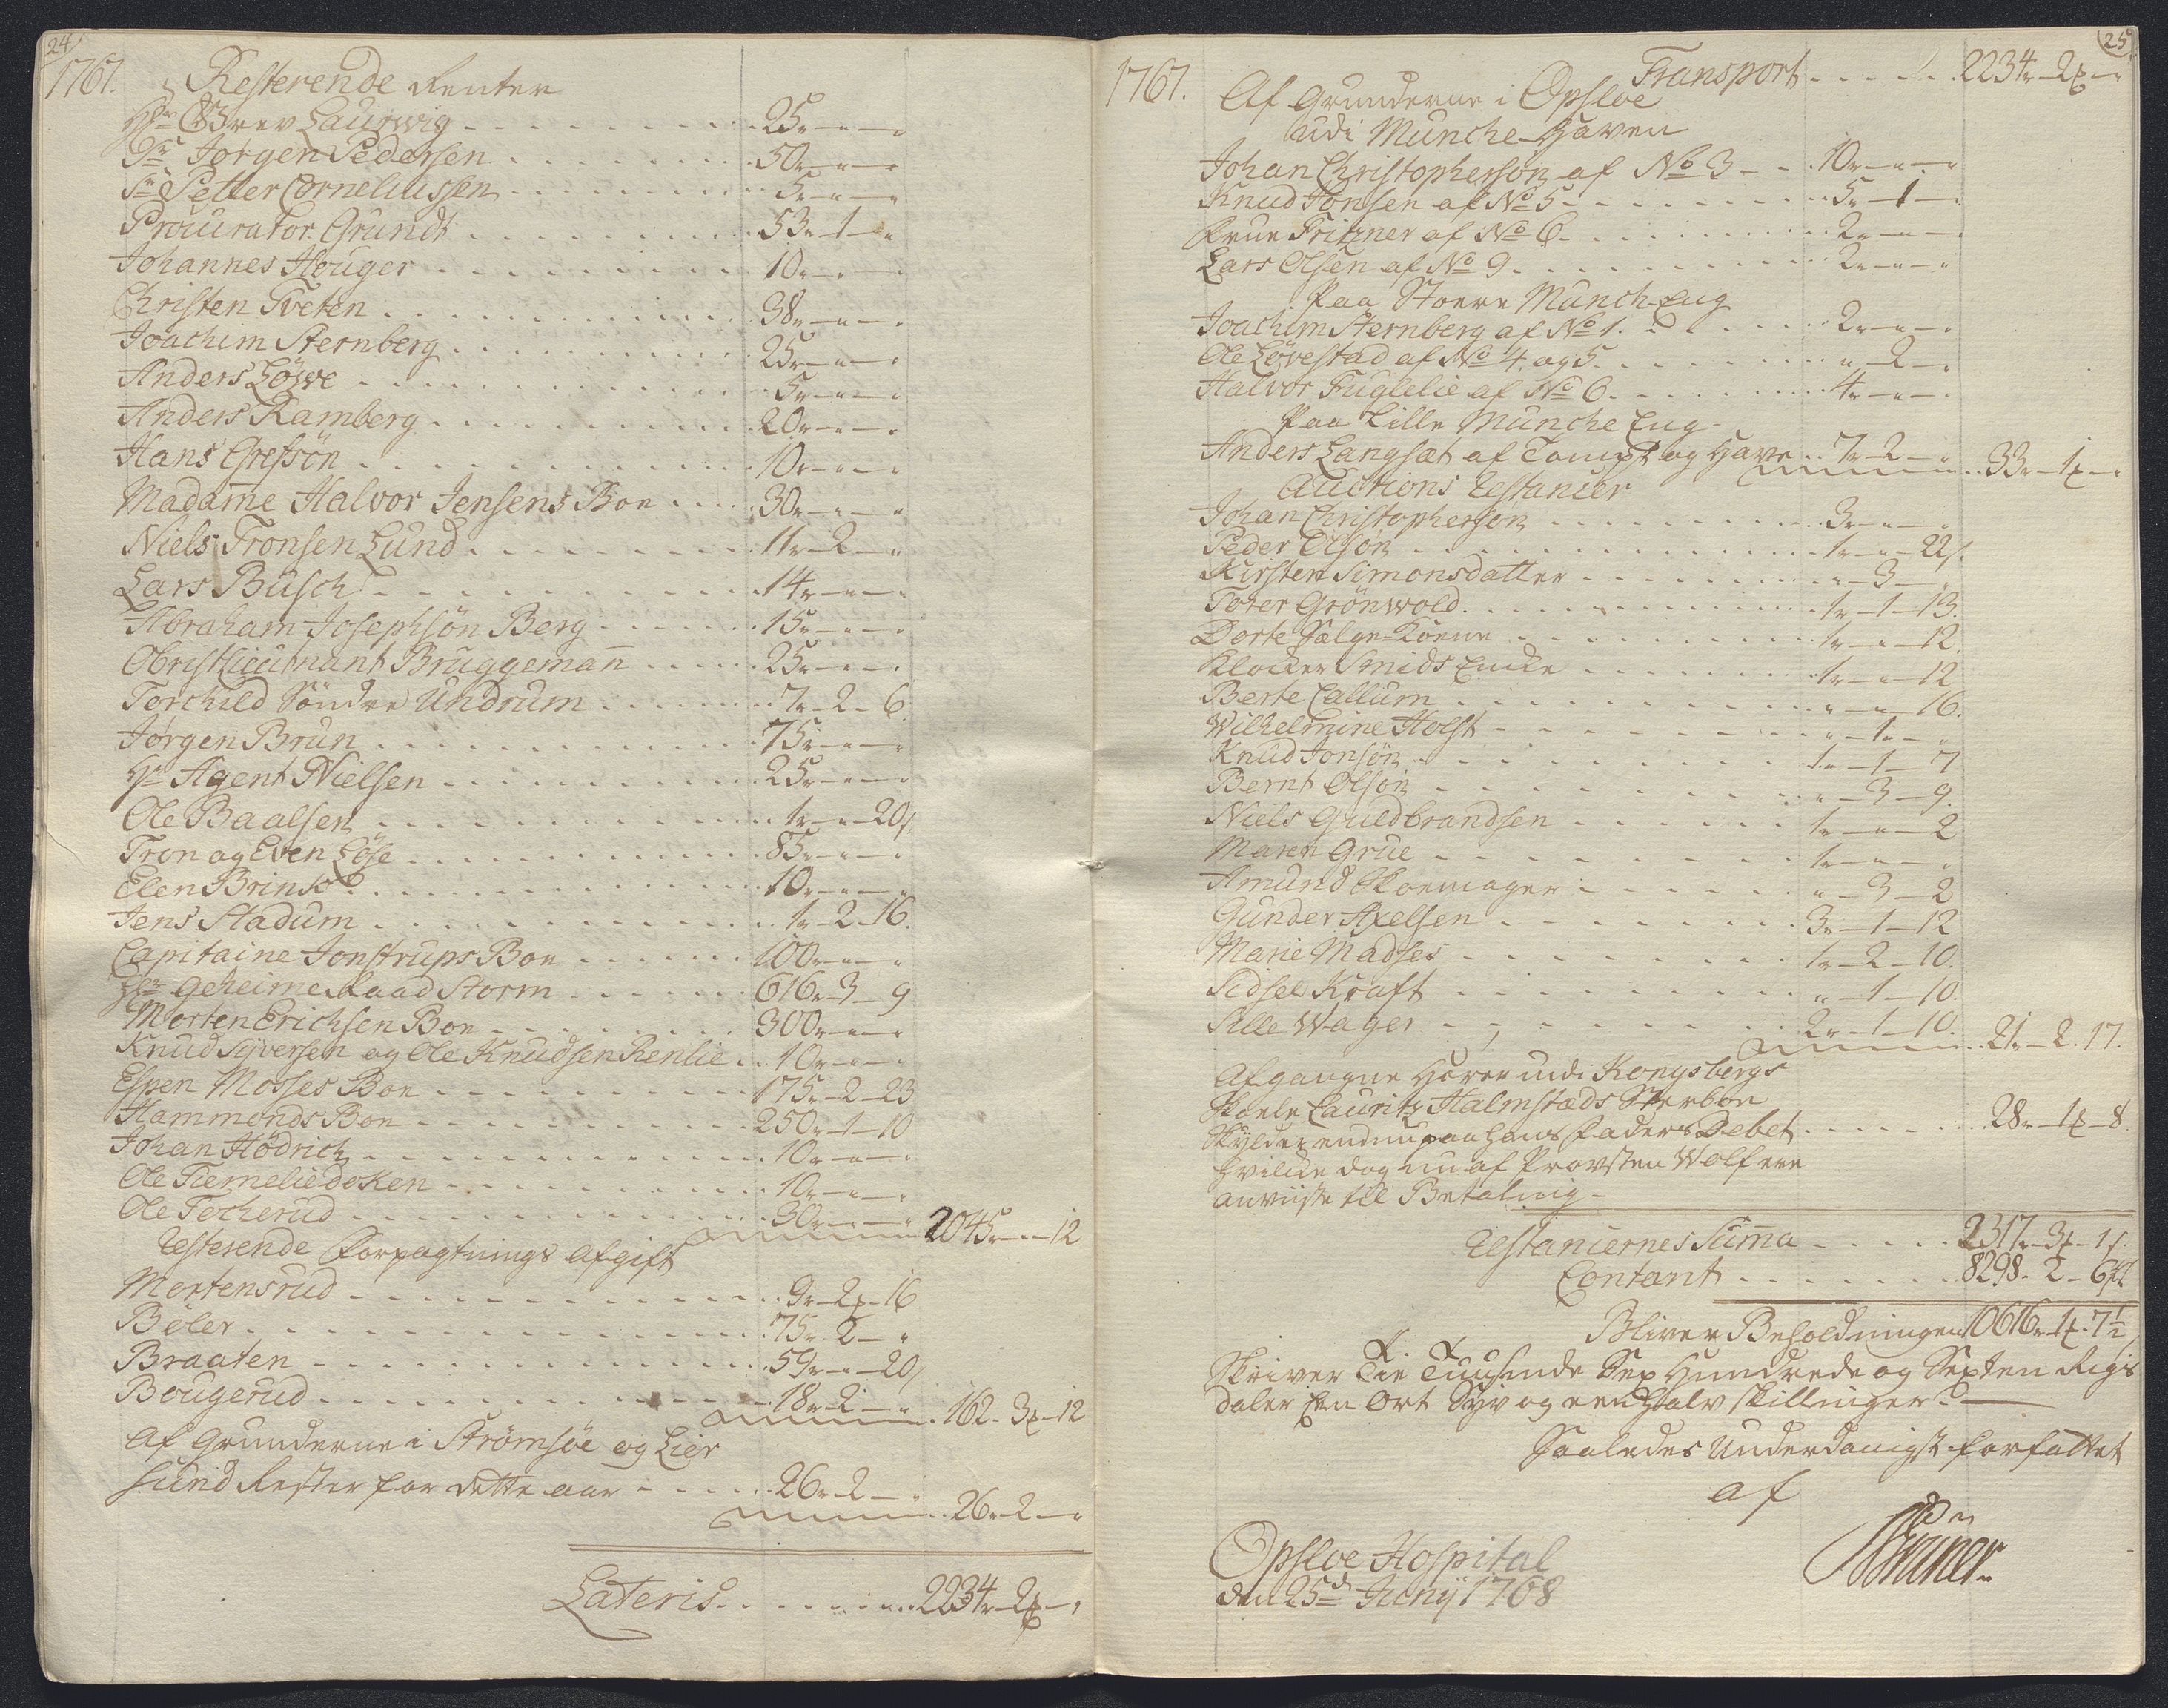 24
1767. Resterende Renter
Hr. Grev Laurwig - - - 25 r - " - "
Sr. Jørgen Pedersen - - - 50 r - " - "
Sr. Petter Corneliussen - - - 5 r - " - "
Procurator Grundt - - - 53 r - 1 - "
Johannes Houger - - - 10 r - " - "
Christen Tveten - - - 38 r - " - "
Joachim Sternberg - - - 25 r - " - "
Anders Löwe - - - 5 r - " - "
Anders Ramberg - - - 20 r - " - "
Hans Grefsön - - - 10 r - " - "
Madame Halvor Jensens Boe - - - 30 r - " - "
Niels Tronsen Lund - - - 11 r - 2 - "
Lars Busch - - - 14 r - " - "
Abraham Josephsön Berg - - - 15 r - " - "
Obristlieutnant Bruggeman - - - 25 r - " - "
Torchild Söndre Undrum - - - 7 r - 2 - 6
Jørgen Brun - - - 75 r - " - "
Hr. Agent Nielsen - - - 25 r - " - "
Ole Baalsen - - - 1 r - " - 20 s
Tron og Even Löse - - - 85 r - " - "
Elen Brinks - - - 10 r - " - "
Jens Stadum - - - 1 r - 2 - 16
Capitaine Jonstrups Boe - - - 100 r - " - "
Hr. Geheime Raad Storm - - - 616 r - 3 - 9
Morten Erichsen Boe - - - 300 r - " - "
Knud Syversen og Ole Knudsen Renlie - - 10 r - " - "
Espen Mosses Boe - - - 175 r - 2 - 23
Hammonds Boe - - - 250 r - 1 - 10
Johan Hödrich - - - 10 r - " - "
Ole Tiemeliedoken - - - 10 r - " - "
Ole Tocherud - - - 30 r - " - " 2045 r - " - 12
Resterende Forpagtnings Afgift
Mortensrud - - - 9 r - 2 - 16
Böler - - - 75 r - 2 - "
Braaten - - - 59 r - " - 20 s
Bougerud - - - 18 r - 2 - " 162 - 3 - 12
Af Grunderne i Strømsöe og Lier
sund Rester for dette aar - - - 26 r - 2 - "
26 r - 2 - "
Lateris - - - 2234 r - 2 - "
25
1767. Transport - - - 2234 r - 2 - "
Af Grunderne i Opsloe
udi Munche Haven
Johan Christophersön af No 3 - - 10 r - " - "
Knud Jonsen af No 5 - - - 5 r - 1 - "
Frue Fritzner af No 6 - - - 2 r - " - "
Lars Olsen af No 9 - - - 2 r - " - "
Paa Stoere Munch-Eng
Joachim Sternberg af No 1 - - - 2 r - " - "
Ole Lövestad af No 4 og 5 - - - " - 2 - "
Halvor Fuglelie af No 6 - - - 4 r - " - "
Paa Lille Munche Eng
Anders Langsæt af Tompt og Have - - 7 r - 2 - " 33 r - 1 - "
Auctions Restancer
Johan Christophersön - - - 3 r - " - "
Peder Olsön - - - 1 r - " - 22 s
Kirsten Simonsdatter - - - " - 3 - "
Torer Grönwold - - - 1 r - 1 - 13
Dorte Sælge-Koene - - - 1 r - " - 12
Klocker Smids Encke - - - 1 r - " - 12
Berte Callum - - - " - " - 16
Wilhelmine Holst - - - " - 1 - "
Knud Jonsön - - - 1 r - 1 - 7
Bernt Olsön - - - " - 3 - 9
Niels Guldbrandsen - - - 1 r - " - 2
Maren Grue - - - 1 r - " - "
Amund Skoemager - - - " - 3 - 2
Gunder Axelsen - - - 3 r - 1 - 12
Marie Madses - - - 1 r - 2 - 10
Sidsel Kraft - - - " - 1 - 10
Sille Wager - - - 2 r - 1 - 10 21 r - 2 . 17
Afgangne Hörer udi Kongsbergs
Skoele Lauritz Halmstæds Sterboe
Skylder endnu paa hans Faders Debet - - - 28 r - 1 - 8
hvilke dog nu af Provsten Wolf ere
anviiste til Betaling -
Restancernes Summa - - - 2317 r - 3 - 1 s
Contant - - - 8298 - 2 - 6½
Bliver Beholdningen 10616 r - 1 - 7½
Skriver Tie Tuusende Sex Hundrede og Sexten Rigs
daler Een Ort Syv og een halv skillinger
Saaledes Underdanigst forfattet
af
Opsloe Hospital
den 25d Junij 1768